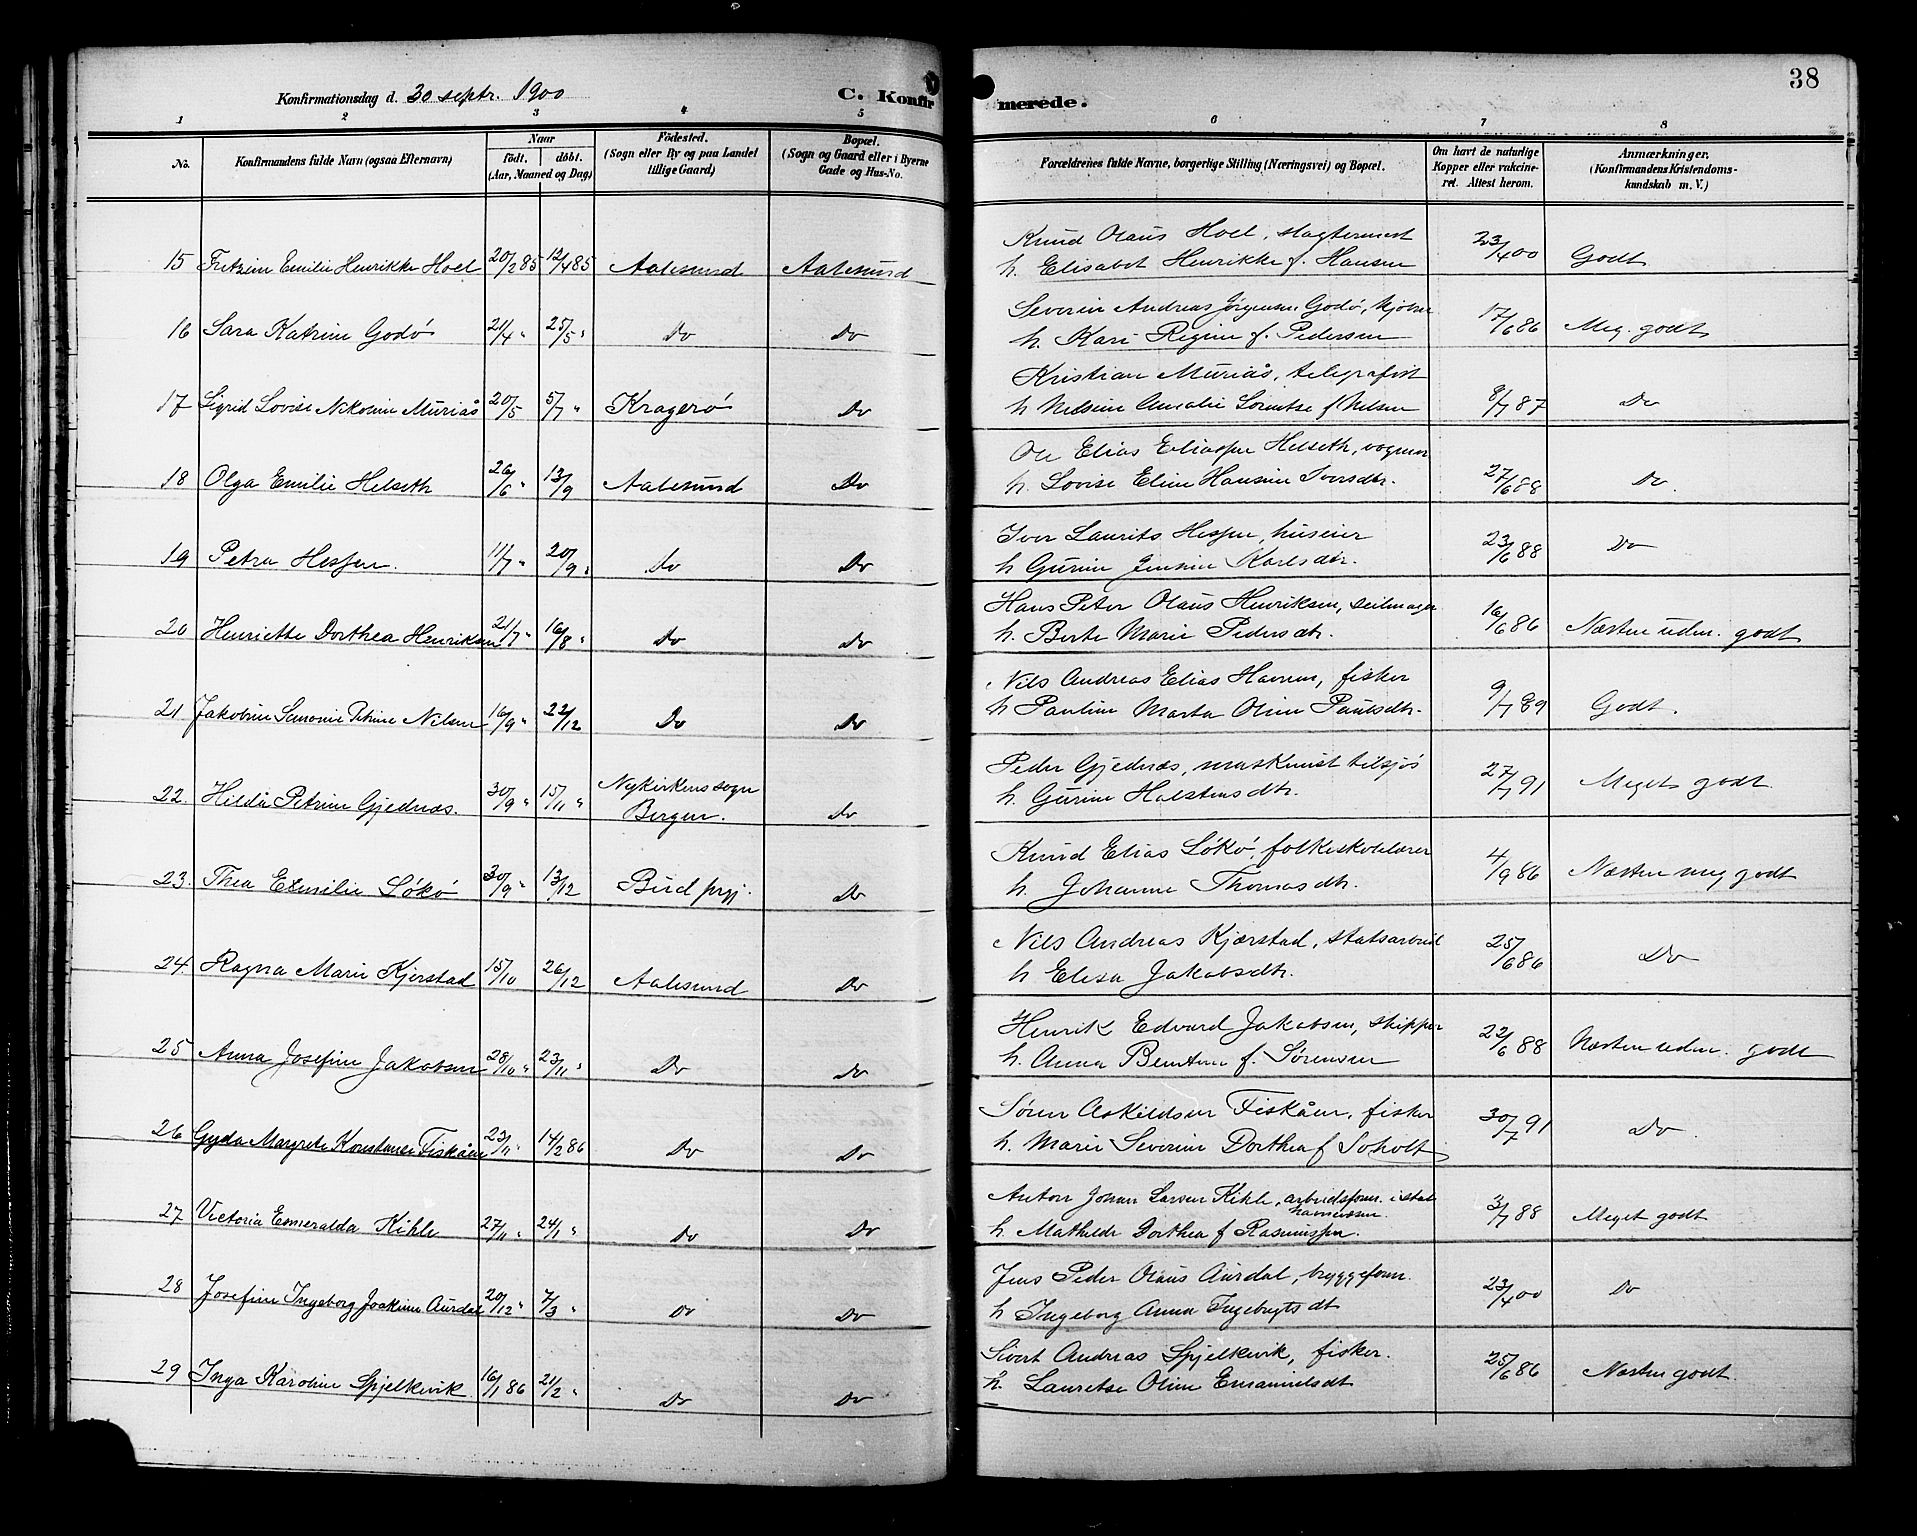 38
Konfirmationsdag d. 30 septr. 1900
C. Konfir
merede.
1 2 3 4 5 6 7 8
No. Konfirmandens fulde Navn (ogsaa Efternavn) Naar født. døbt. (Aar, Maaned og Dag) Fødested. (Sogn eller By og paa Landet tillige Gaard) Bopæl. (Sogn og Gaard eller i Byerne Gade og Hus-No. Forældrenes fulde Navne, borgerlige Stilling (Næringsvei) og Bopæl. Om havt de naturlige Kopper eller vakcineret. Attest herom. Anmærkninger. (Konfirmandens Kristendomskundskab m. V.)
15 Emilie Henrikke Hoel 20/2 85 12/4 85 Aalesund Aalesund Knud Olaus Hoel, slagtermest 23/4 00 Godt
h. Elisabet Henrikke f. Hansen
16 Sara Katrine Godø 21/4 " 25/5 " Do Do Severin Andreas Jørgensen Godø, 17/6 86 Meg. godt
h. Kari Regine f. Pedersen
17 Sigrid Lovise Nikoline Muriås 20/5 5/7 " Kragerø Do Kristian Muriås, telegrafist 8/7 87 Do
h Nilsine Amalie Lorentse f Nilsen
18 Olga Emilie Helseth 26/6 " 13/9 Aalesund Do Ole Elias Eliassen Helseth, vognm 27/6 88 Do.
h. Lovise Eline Hansine Iversdtr.
19 Petra Hessen. 11/7 " 20/9 " Do Do Iver Laurits Hessen, huseier 23/6 88 Do
h Gurine Jensine Karlsdtr.
20 Henriette Dorthea Henriksen 21/7 " 16/8 " Do Do Hans Peter Olaus Henriksen, seilmager 16/6 86 Næsten udm. godt
h. Berte Marie Pedersdtr.
21 Jakobine Petrine Nilsen 16/9 " 22/12 Do Do Nils Andreas Elias Havnen, fisker 9/7 89 Godt.
h Pauline Marta Oline Paulsdtr.
22. Hilda Petrine Gjednæs. 30/9 " 15/11 " Nykirkens sogn Bergen. Do Peder Gjednæs, maskinist tilsjøs 27/7 91 Meget godt.
h. Gurine Halstensdtr.
23. Thea Emilie Løkø 30/9 " 13/12 Bud prgj. Do Knud Elias Løkø, folkeskolelærer 4/9 86 Næsten meg godt
h. Johanne Thomasdtr.
24 Ragna Marie Kjerstad 15/10 26/12 Aalesund Do Nils Andreas Kjærstad, statsarbeid 25/6 86 Do
h Elisa Jakobsdtr.
25 Anna Josefine Jakobsen 28/10 " 23/11 " Do Do Henrik Edvard Jakobsen, skipper 22/6 88 Næsten udm. godt
h. Anna Bentine f. Sørensen
26 Gyda Margrete Konstance Fiskåen 23/11 " 14/2 86 Do Do Søren Askildsen Fiskåen, fisker 30/7 91 Do.
h. Marie Severine Dorthea f Soholt
27 Victoria Esmeralda Kihle 27/11 " 24/1 " Do Do Anton Johan Larsen Kihle, arbeidsform. i stat. havnevæsen. 3/7 88 Meget godt
h. Mathilde Dorthea f Rasmussen.
28 Josefine Ingeborg Joakime Aurdal 20/12 " 7/3 " Do Do Jens Peder Olaus Aurdal, bryggeform. 23/4 00 Do
h Ingeborg Anna Ingebrigtsdt
29 Inga Karoline Spjelkevik. 16/1 86 21/2 " Do Do Sivert Andreas Spjelkevik, fisker. 25/6 86 Næsten godt.
h. Lauretse Oline Emanuelsdt